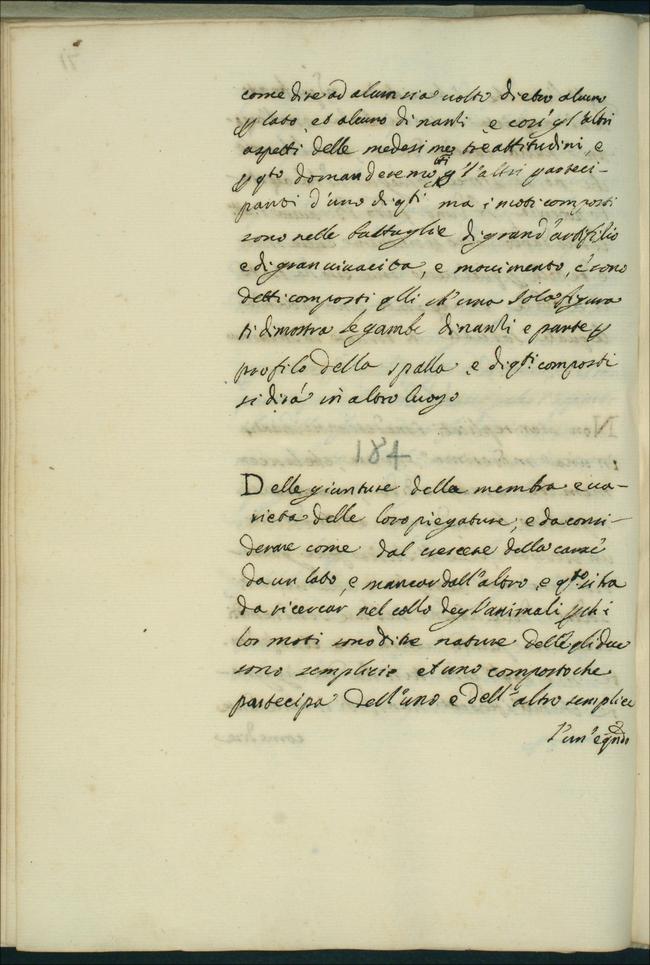 come dire ad alcun sia volto dietro alcuno
p lato, et alcuno dinanti, e così gl'altri
aspetti delle medesime tre attitudini, e
p qto domanderemo gl'altri parteci-
panti d'uno di qti ma i moti composti
sono nelle battaglie di grand'artifitio
e di gran vivacita, e movimento, e sono
detti composti qlli ch'una sola figura
ti dimostra le gambe dinanti e parte p
profilo della spalla, e di qti composti
si dira' in altro luogo
184
Delle giunture delle membra e va-
rieta delle loro piegature, e da consi-
derare come dal crescere della carne
da un lato, e mancar dall'altro, e qto si ha
da ricercar nel collo degl'animali pchi
lor moti sono di tre nature delle qli due
sono semplicie et uno composto che
partecipa dell'uno e dell'altro semplice
l'un' e qndo